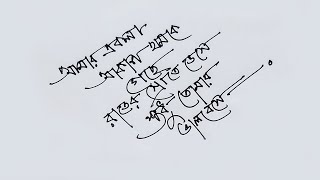 আমার একলা
আকাশ থমকে
গেছে
রাতের স্রোতে ভেসে
শুধু তোমায়
ভালোবেসে